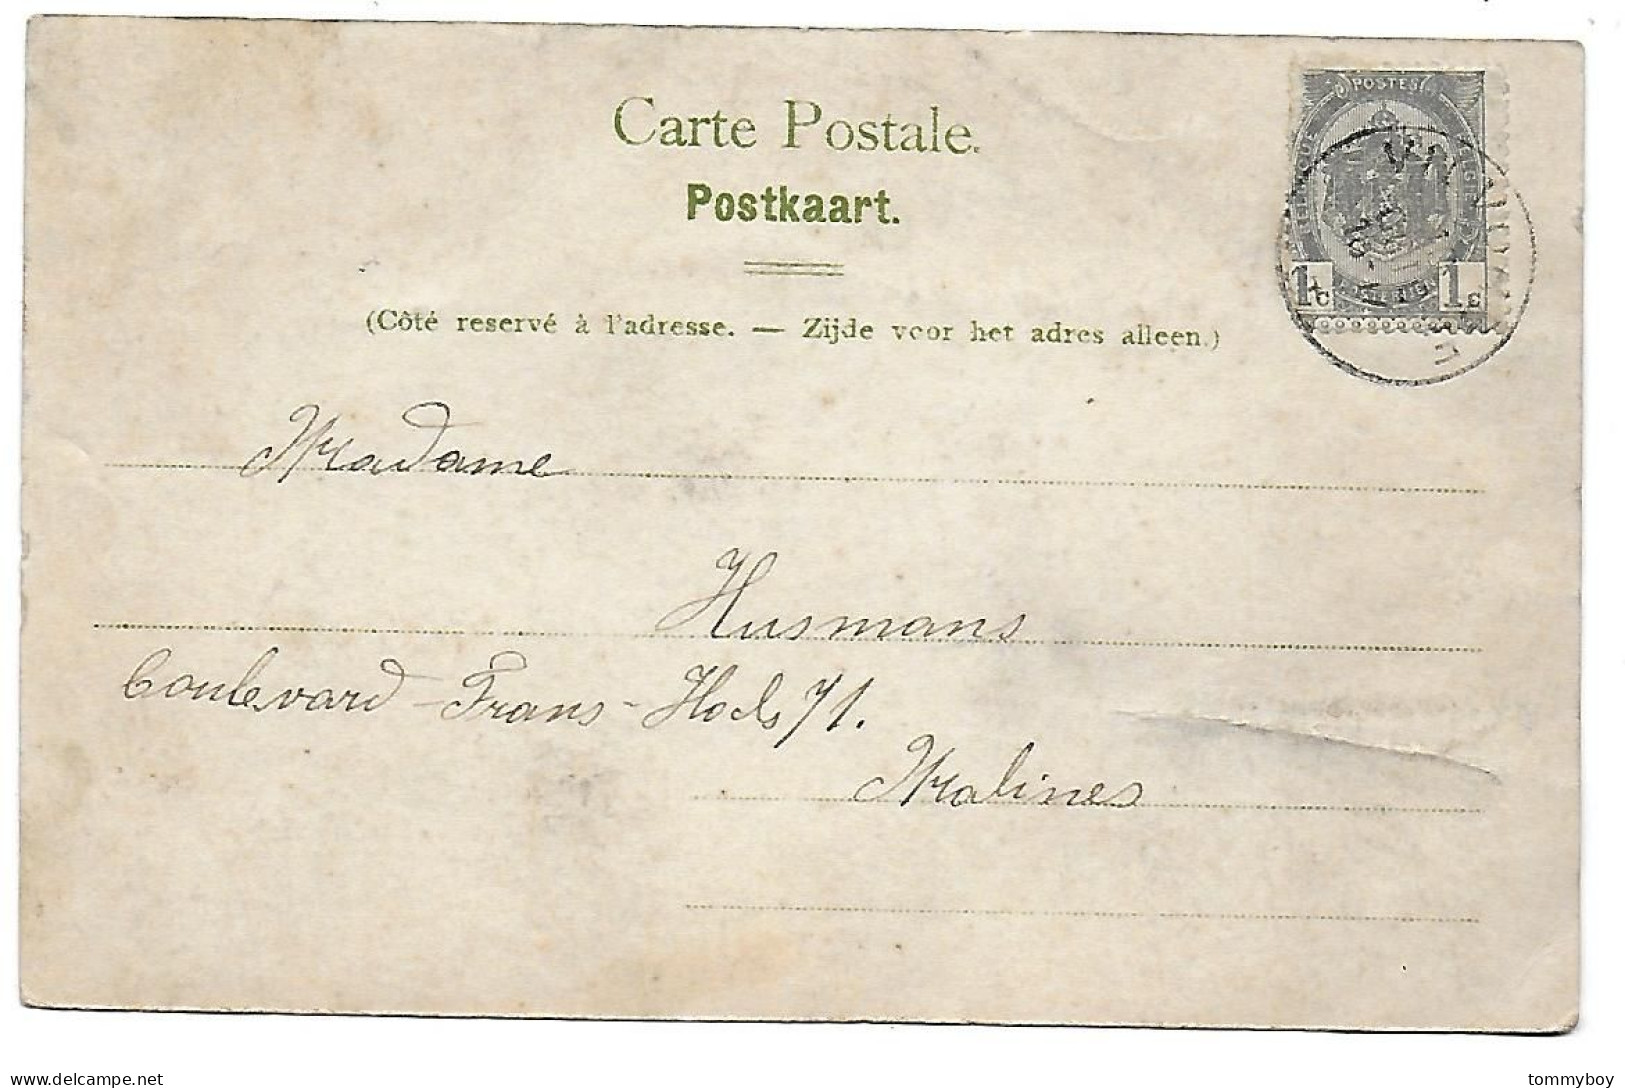 Carte Postale.
POSTES
Postkaart.
1c 1c
(Côté reservé à l'adresse. — Zijde voor het adres alleen.)
Madame
Husmans
Boulevard - Frans - Hals 71.
Malines
delcampe.net
tommyboy